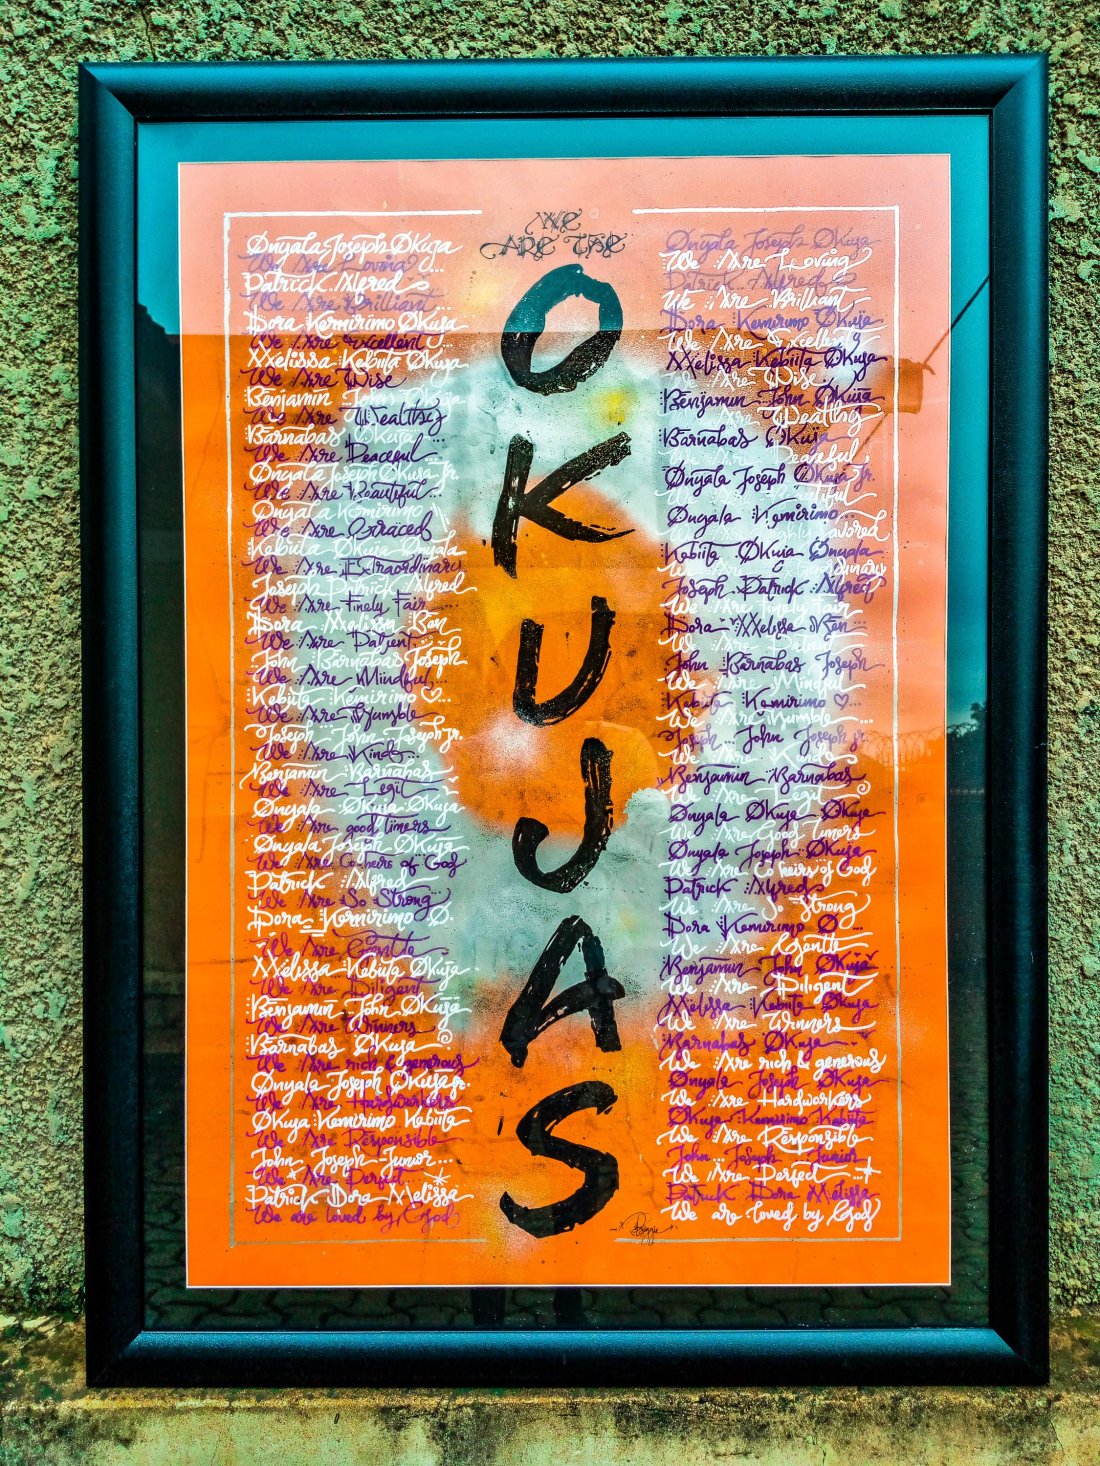 WE
ARE THE
OKUJAS
Onyala Joseph Okuja
We Are Loving
Patrick Alfred
We Are Brilliant
Dora Kemirimo Okuja
We Are Excellent...
Melissa Kebiita Okuja
We Are Wise
Benjamin John Okuja
We Are Wealthy
Barnabas Okuja
We Are Peaceful...
Onyala Joseph Okuja Jr.
We Are Beautiful...
Onyala Kemirimo
We Are Graced
Kebiita Okuja Onyala
We Are Extraordinary
Joseph Patrick Alfred
We Are Finely Fair
Dora Melissa Ben
We Are Patient...
John Barnabas Joseph
We Are Mindful...
Kebiita Kemirimo ♡...
We Are Humble
Joseph John Joseph Jr.
We Are Kind
Benjamin Barnabas
We Are Legit
Onyala Okuja Okuja
We Are good timers
Onyala Joseph Okuja
We Are Co-heirs of God
Patrick Alfred
We Are So Strong
Dora Kemirimo O.
We Are Gentle
Melissa Kebiita Okuja
We Are Diligent
Benjamin John Okuja
We Are Winners
Barnabas Okuja
We Are rich & generous
Onyala Joseph Okuja Jr.
We Are Hardworkers
Okuja Kemirimo Kebiita
We Are Responsible
John Joseph Junior...
We Are Perfect...
Patrick Dora Melissa
We are loved by God
Onyala Joseph Okuja
We Are Loving
Patrick Alfred
We Are Brilliant
Dora Kemirimo Okuja
We Are Excellent
Melissa Kebiita Okuja
We Are Wise
Benjamin John Okuja
We Are Wealthy
Barnabas Okuja
We Are Peaceful
Onyala Joseph Okuja Jr.
We Are Beautiful
Onyala Kemirimo...
We Are Highly Favored
Kebiita Okuja Onyala
We Are Extraordinary
Joseph Patrick Alfred
We Are Finely Fair
Dora Melissa Ben...
We Are
John Barnabas Joseph
We Are Mindful
Kebiita Kemirimo ♡...
We Are Humble...
Joseph John Joseph Jr
We Are Kind
Benjamin Barnabas
We Are Legit
Onyala Okuja Okuja
We Are Good timers
Onyala Joseph Okuja
We Are Co heirs of God
Patrick Alfred
We Are So Strong
Dora Kemirimo O...
We Are Gentle
Benjamin John Okuja
We Are Diligent
Melissa Kebiita Okuja
We Are Winners
Barnabas Okuja...
We Are rich & generous
Onyala Joseph Okuja
We Are Hardworkers
Okuja Kemirimo Kebiita
We Are Responsible
John Joseph Junior
We Are Perfect...
Patrick Dora Melissa
We are loved by God